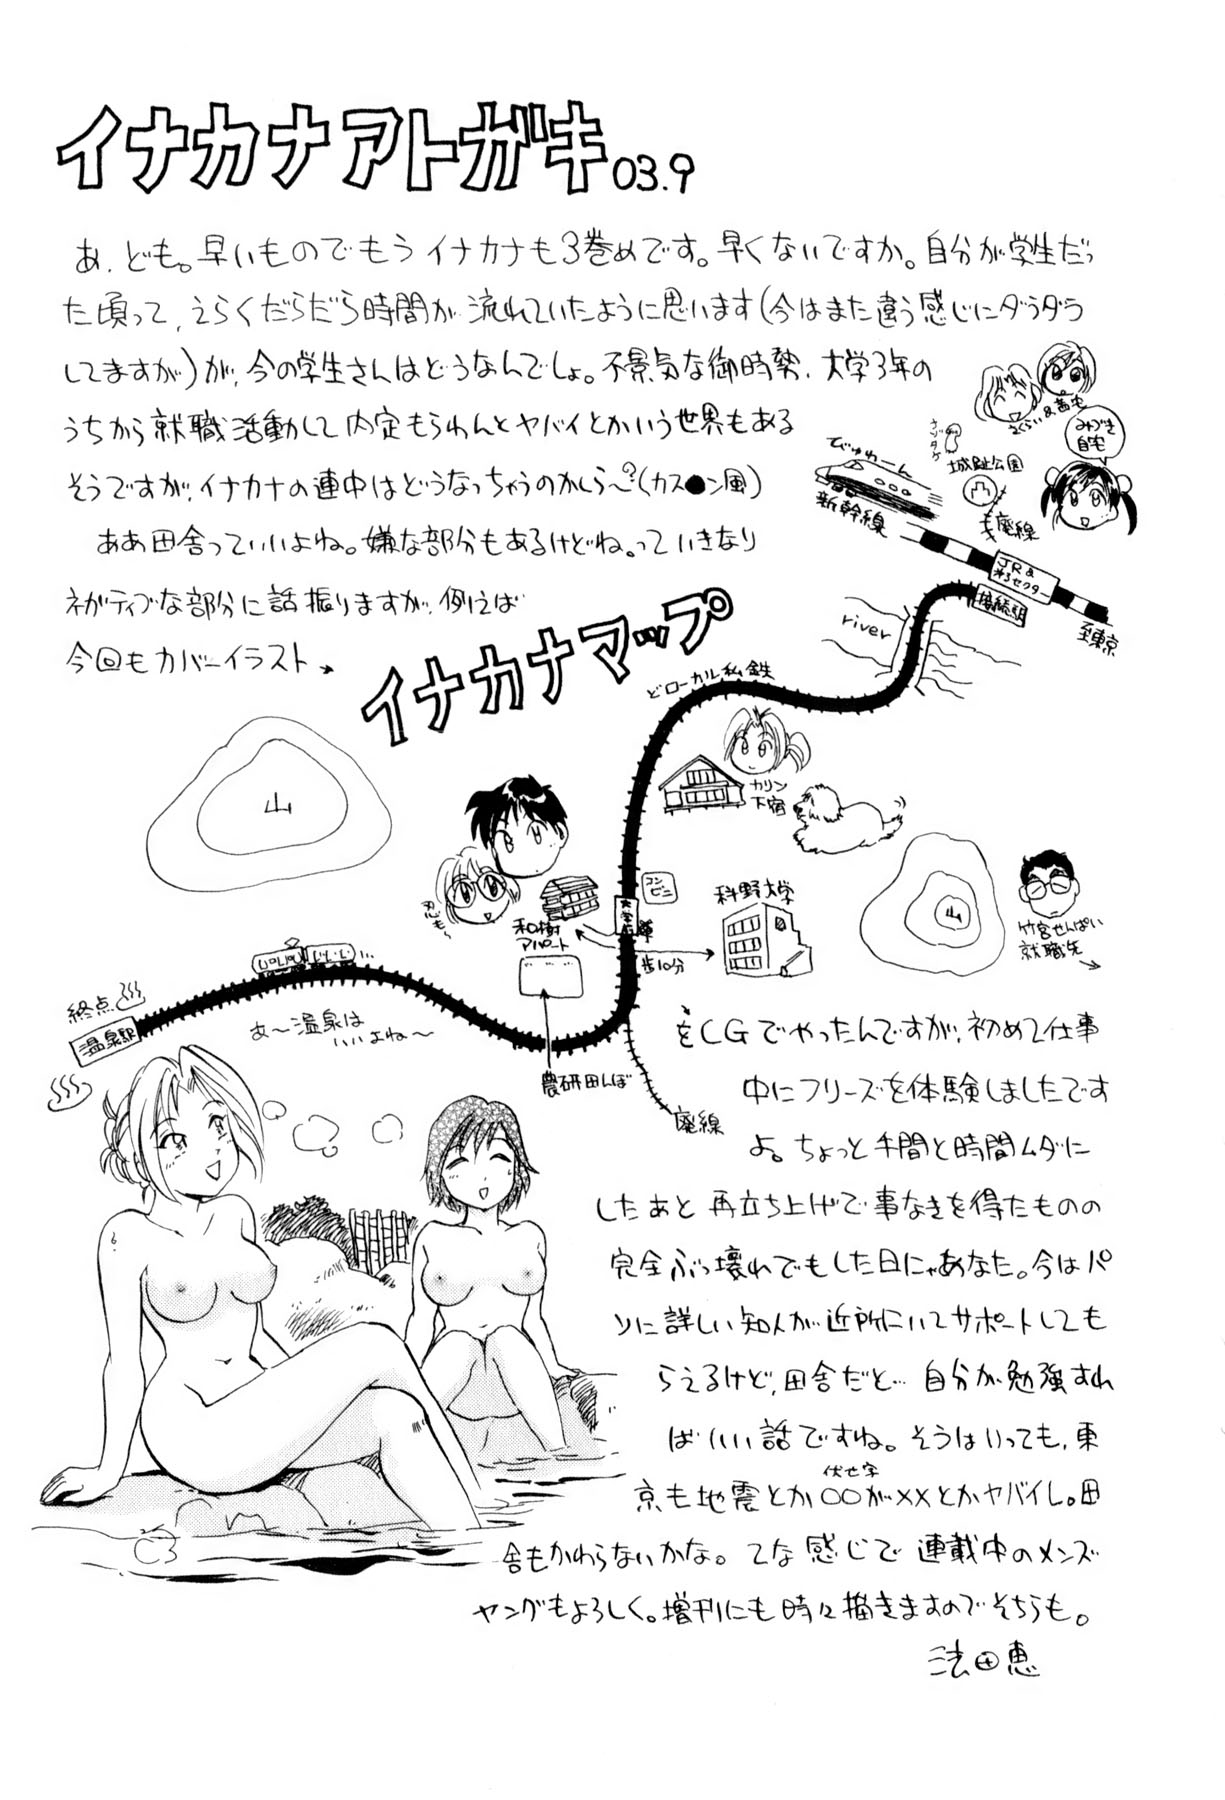 イナカナアトガキ03.9
あ、ども。早いものでもうイナカナも3巻めです。早くないですか。自分が学生だっ
た頃って、えらくだらだら時間が流れていたように思います(今はまた違う感じにダラダラ
してますが)が、今の学生さんはどうなんでしょ。不景気な御時勢、大学3年の
うちから就職活動して内定もらわんとヤバイとかいう世界もある
そうですが、イナカナの連中はどうなっちゃうのかしら〜?(カス●ン風)
ああ田舎っていいよね。嫌な部分もあるけどね。っていきなり
ネガティブな部分に話振りますが、例えば
今回もカバーイラスト
イナカナマップ
さくらい&茜宅
みづき
自宅
城趾公園
廃線
びゅわーん
新幹線
JR&
第3セクター
接続駅
至東京
river
どローカル私鉄
カリン
下宿
山
忍も〜
和樹
アパート
コン
ビニ
科野大学
歩10分
山
竹宮せんぱい
就職先
終点
温泉駅
あ〜温泉は
いいよね〜
農研田んぼ
廃線
をCGでやったんですが、初めて仕事
中にフリーズを体験しましたです
よ。ちょっと手間と時間ムダに
したあと再立ち上げで事なきを得たものの
完全ぶっ壊れでもした日にゃあなた。今はパ
ソに詳しい知人が近所にいてサポートしても
らえるけど、田舎だと… 自分が勉強すれ
ばいい話ですね。そうはいっても、東
伏せ字
京も地震とか○○が××とかヤバイし。田
舎もかわらないかな。てな感じで連載中のメンズ
ヤングもよろしく。増刊にも時々描きますのでそちらも。
法田恵